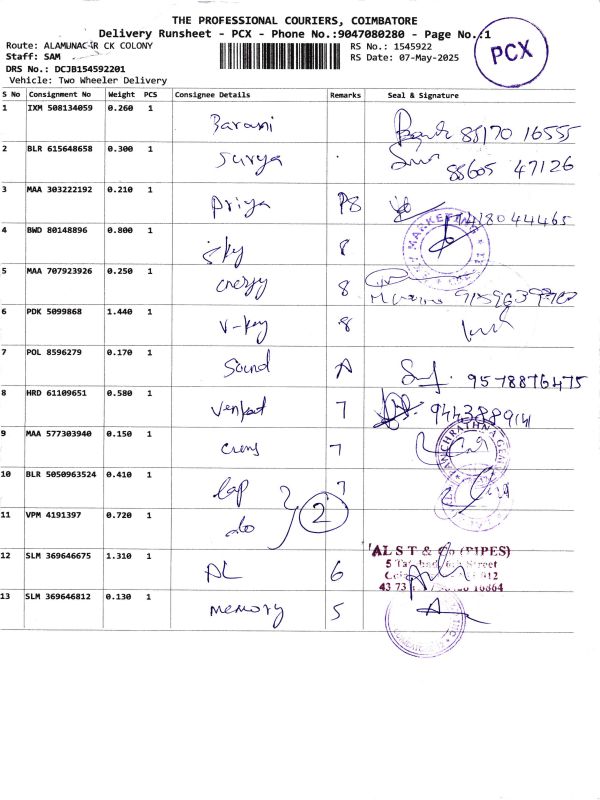 THE PROFESSIONAL COURIERS, COIMBATORE
Delivery Runsheet - PCX - Phone No.:9047080280 - Page No.:1
PCX
Route: ALAMUNAC-R CK COLONY
RS No.: 1545922
Staff: SAM
RS Date: 07-May-2025
DRS No.: DCJB154592201
Vehicle: Two Wheeler Delivery
S No Consignment No Weight PCS Consignee Details Remarks Seal & Signature
1 IXM 508134059 0.260 1 Barani 85170 16555
2 BLR 615648658 0.300 1 Surya 85605 47126
3 MAA 303222192 0.210 1 Priya P8
4 BWD 80148896 0.800 1 Sky 8 MARKETING
5 MAA 707923926 0.250 1 energy 8
6 PDK 5099868 1.440 1 V-key 8
7 POL 8596279 0.170 1 Sound A 9578876475
8 HRD 61109651 0.580 1 Venkat 7
9 MAA 577303940 0.150 1 7
10 BLR 5050963524 0.410 1 7
11 VPM 4191397 0.720 1 do 2
12 SLM 369646675 1.310 1 AL 6 AL S T & Co (PIPES)
Street
13 SLM 369646812 0.130 1 memory 5